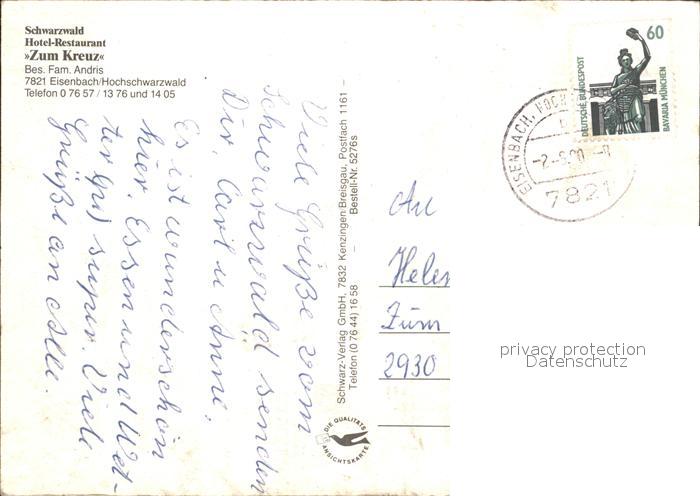 Schwarzwald
Hotel-Restaurant
»Zum Kreuz«
Bes. Fam. Andris
7821 Eisenbach/Hochschwarzwald
Telefon 0 76 57 / 13 76 und 14 05
Viele Grüße vom
Schwarzwald senden
Dir, Carl u Anne.
Es ist wunderschön
hier. Essen und Wet-
ter super. Viele
Grüße an Alle.
Schwarz-Verlag GmbH, 7832 Kenzingen/Breisgau, Postfach 1161 –
Telefon (0 76 44) 16 58 – Bestell-Nr. 5276s
DIE QUALITÄTS
ANSICHTSKARTE
60
DEUTSCHE BUNDESPOST
BAVARIA MÜNCHEN
EISENBACH, HOCH
7821
An
Helen
Zum
2930
privacy protection
Datenschutz